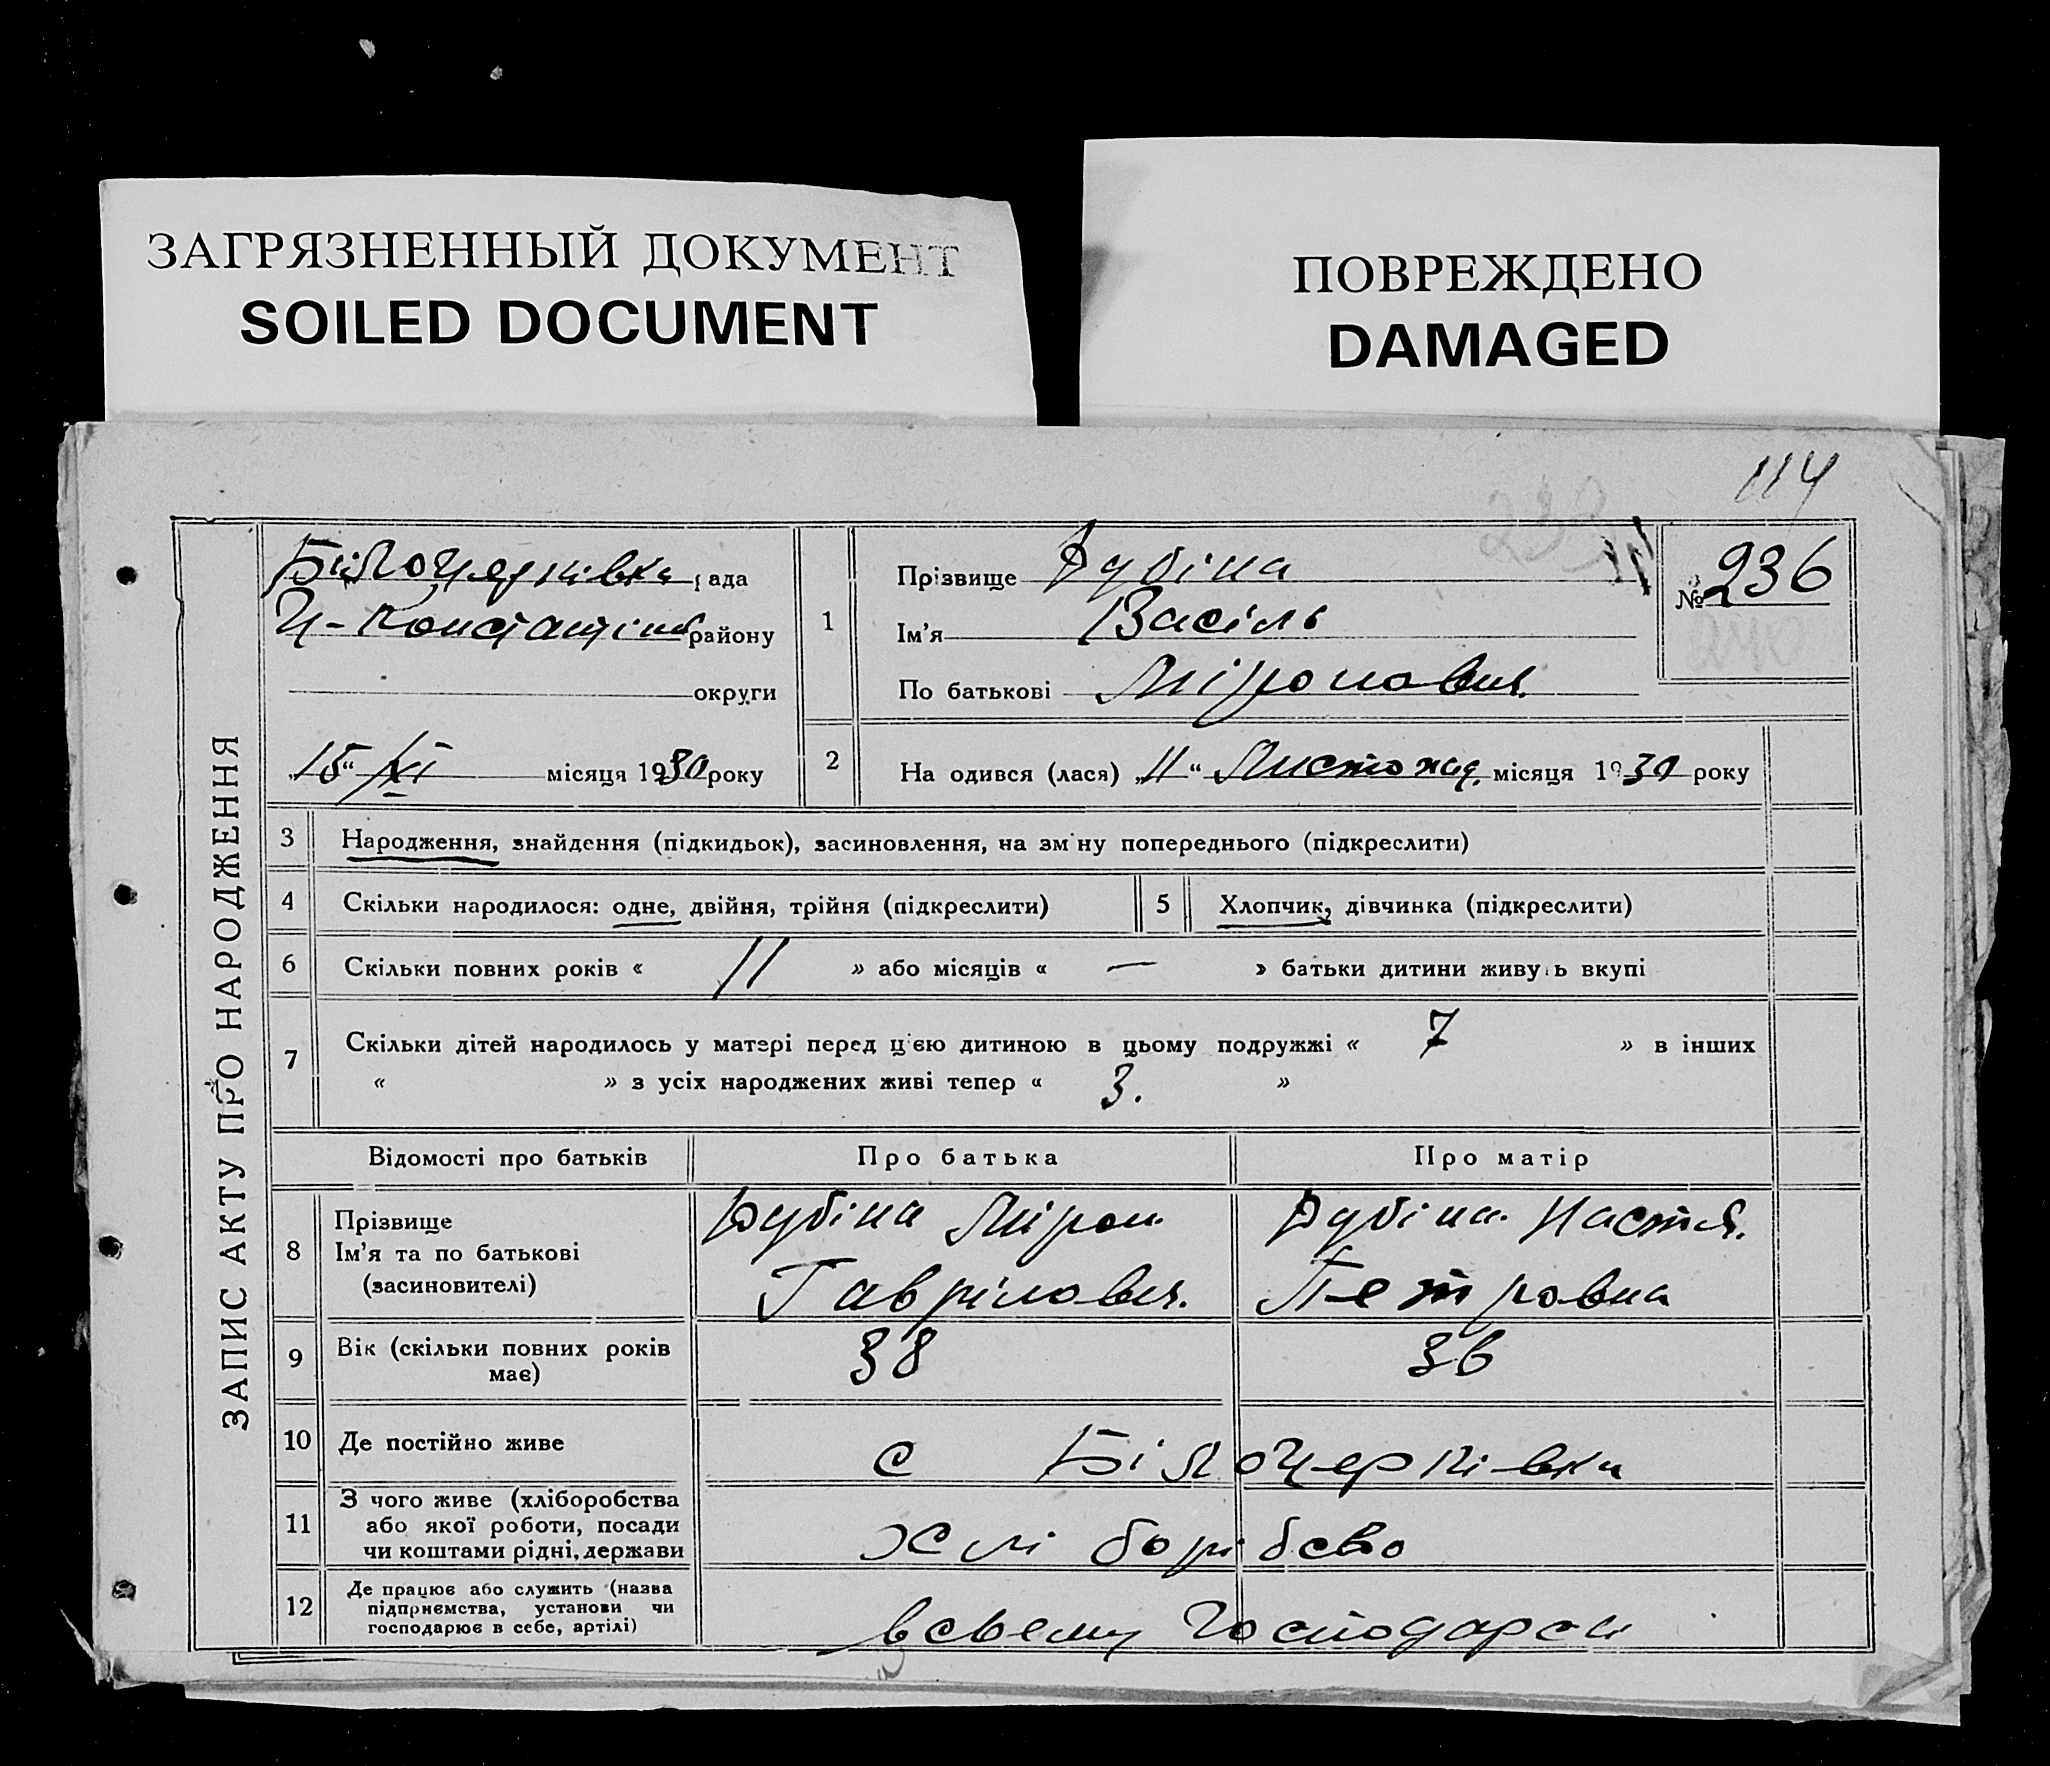 ЗАГРЯЗНЕННЫЙ ДОКУМЕНТ
SOILED DOCUMENT
ПОВРЕЖДЕНО
DAMAGED
114
ЗАПИС АКТУ ПРО НАРОДЖЕННЯ
Білоцерківка рада
району
округи
„15“ XI місяця 1930 року
1
Прізвище Дубіна
Ім'я Васіль
По батькові Міронович
№ 236
240
2
На одився (лася) „11“ Листопад. місяця 1930 року
3 Народження, знайдення (підкидьок), засиновлення, на зм ну попереднього (підкреслити)
4 Скільки народилося: одне, двійня, трійня (підкреслити)
5 Хлопчик, дівчинка (підкреслити)
6 Скільки повних років « 11 » або місяців « — » батьки дитини живу ь вкупі
7 Скільки дітей народилось у матері перед цією дитиною в цьому подружжі « 7 » в інших
« » з усіх народжених живі тепер « 3. »
Відомості про батьків Про батька Про матір
8 Прізвище
Ім'я та по батькові
(засиновителі)
Дубіна Мірон
Гаврілович.
Дубіна Настя.
Петровна
9 Вік (скільки повних років
має)
38
36
10 Де постійно живе
с Білоцерківки
11 З чого живе (хліборобства
або якої роботи, посади
чи коштами рідні, держави
хлі борібсво
12 Де працює або служить (назва
підприємства, установи чи
господарює в себе, артілі)
всвему Господарси